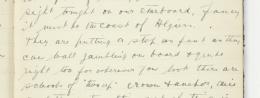 sight tonight on our starboard, Fancy
it must be the coast of Algiers.
They are putting a stop as fast as they
can all gambling on board & quite
right too for wherever you look there are
schools of "heavy" crown & anchor, dice